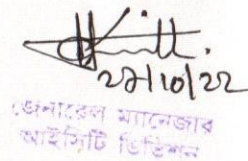 ২৭/১০/২২
জেনারেল ম্যানেজার
আইসিটি ডিভিশন